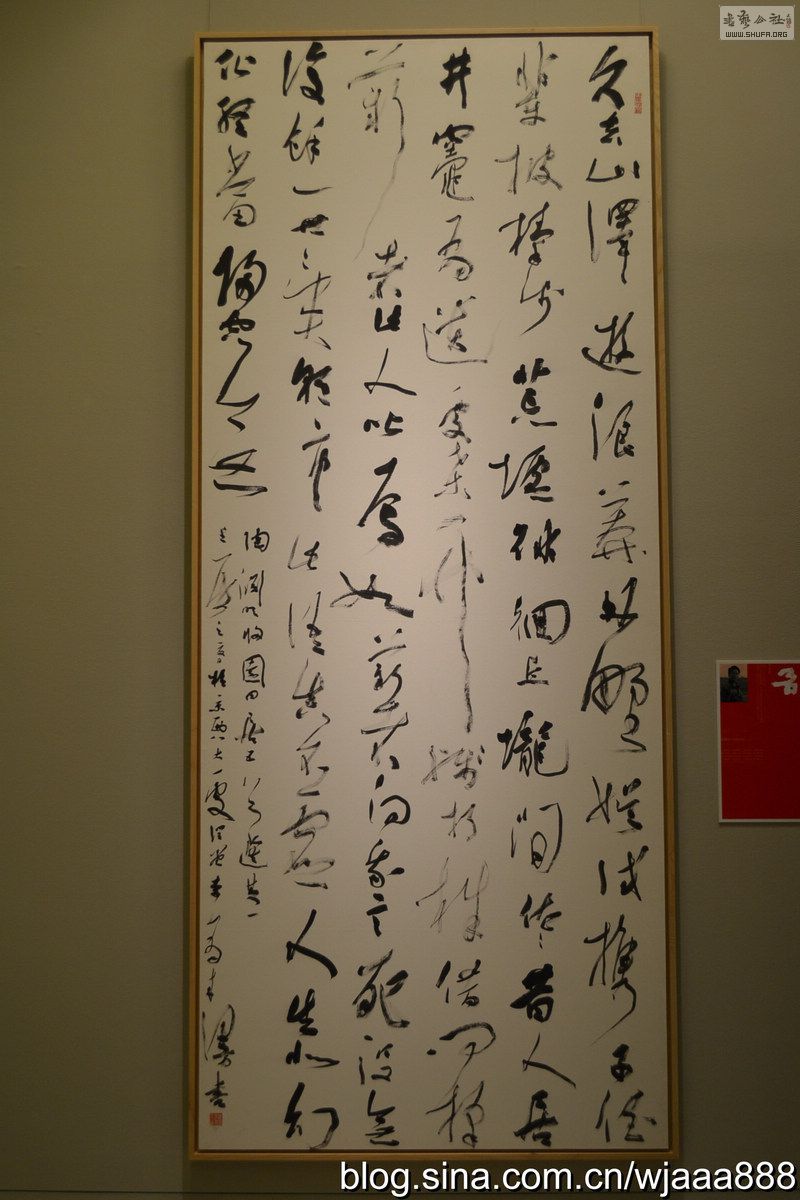 久去山澤遊浪莽林野娛試攜子侄
輩披榛步荒墟徘徊丘壠間依依昔人居
井竈有遺處桑竹殘朽株借問採
薪者此人皆焉如薪者向我言死沒無
復餘一世異朝市此語真不虛人生似幻
化終當歸空無
陶淵明歸園田居五首選其一
WWW.SHUFA.ORG
blog.sina.com.cn/wjaaa888